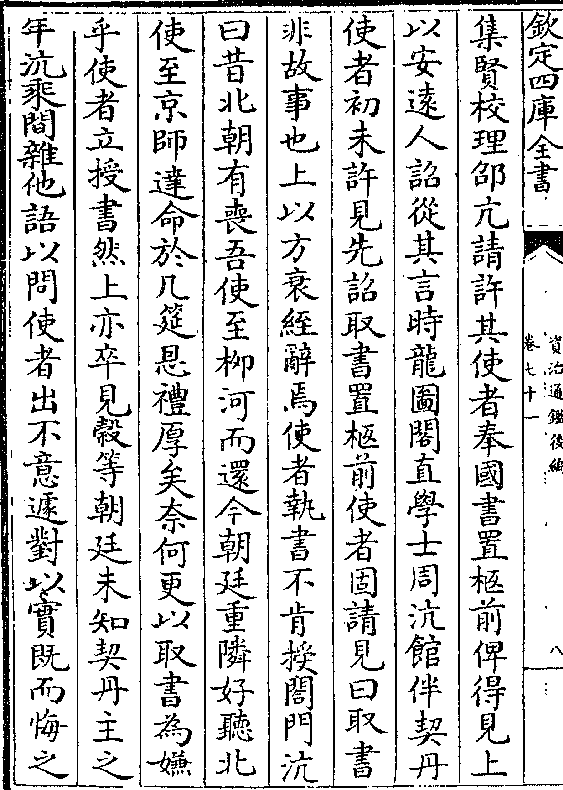 欽定四庫全書
資治通鑑後編
卷七十一
八
集賢校理邵亢請許其使者奉國書置柩前俾得見上
以安遠人詔從其言時龍圖閣直學士周沆館伴契丹
使者初未許見先詔取書置柩前使者固請見曰取書
非故事也上以方衰絰辭焉使者執書不肯授閤門沆
曰昔北朝有喪吾使至柳河而還今朝廷重隣好聽北
使至京師達命於几筵恩禮厚矣奈何更以取書為嫌
乎使者立授書然上亦卒見縠等朝廷未知契丹主之
年沆乘間雜他語以問使者出不意遽對以實既而悔之